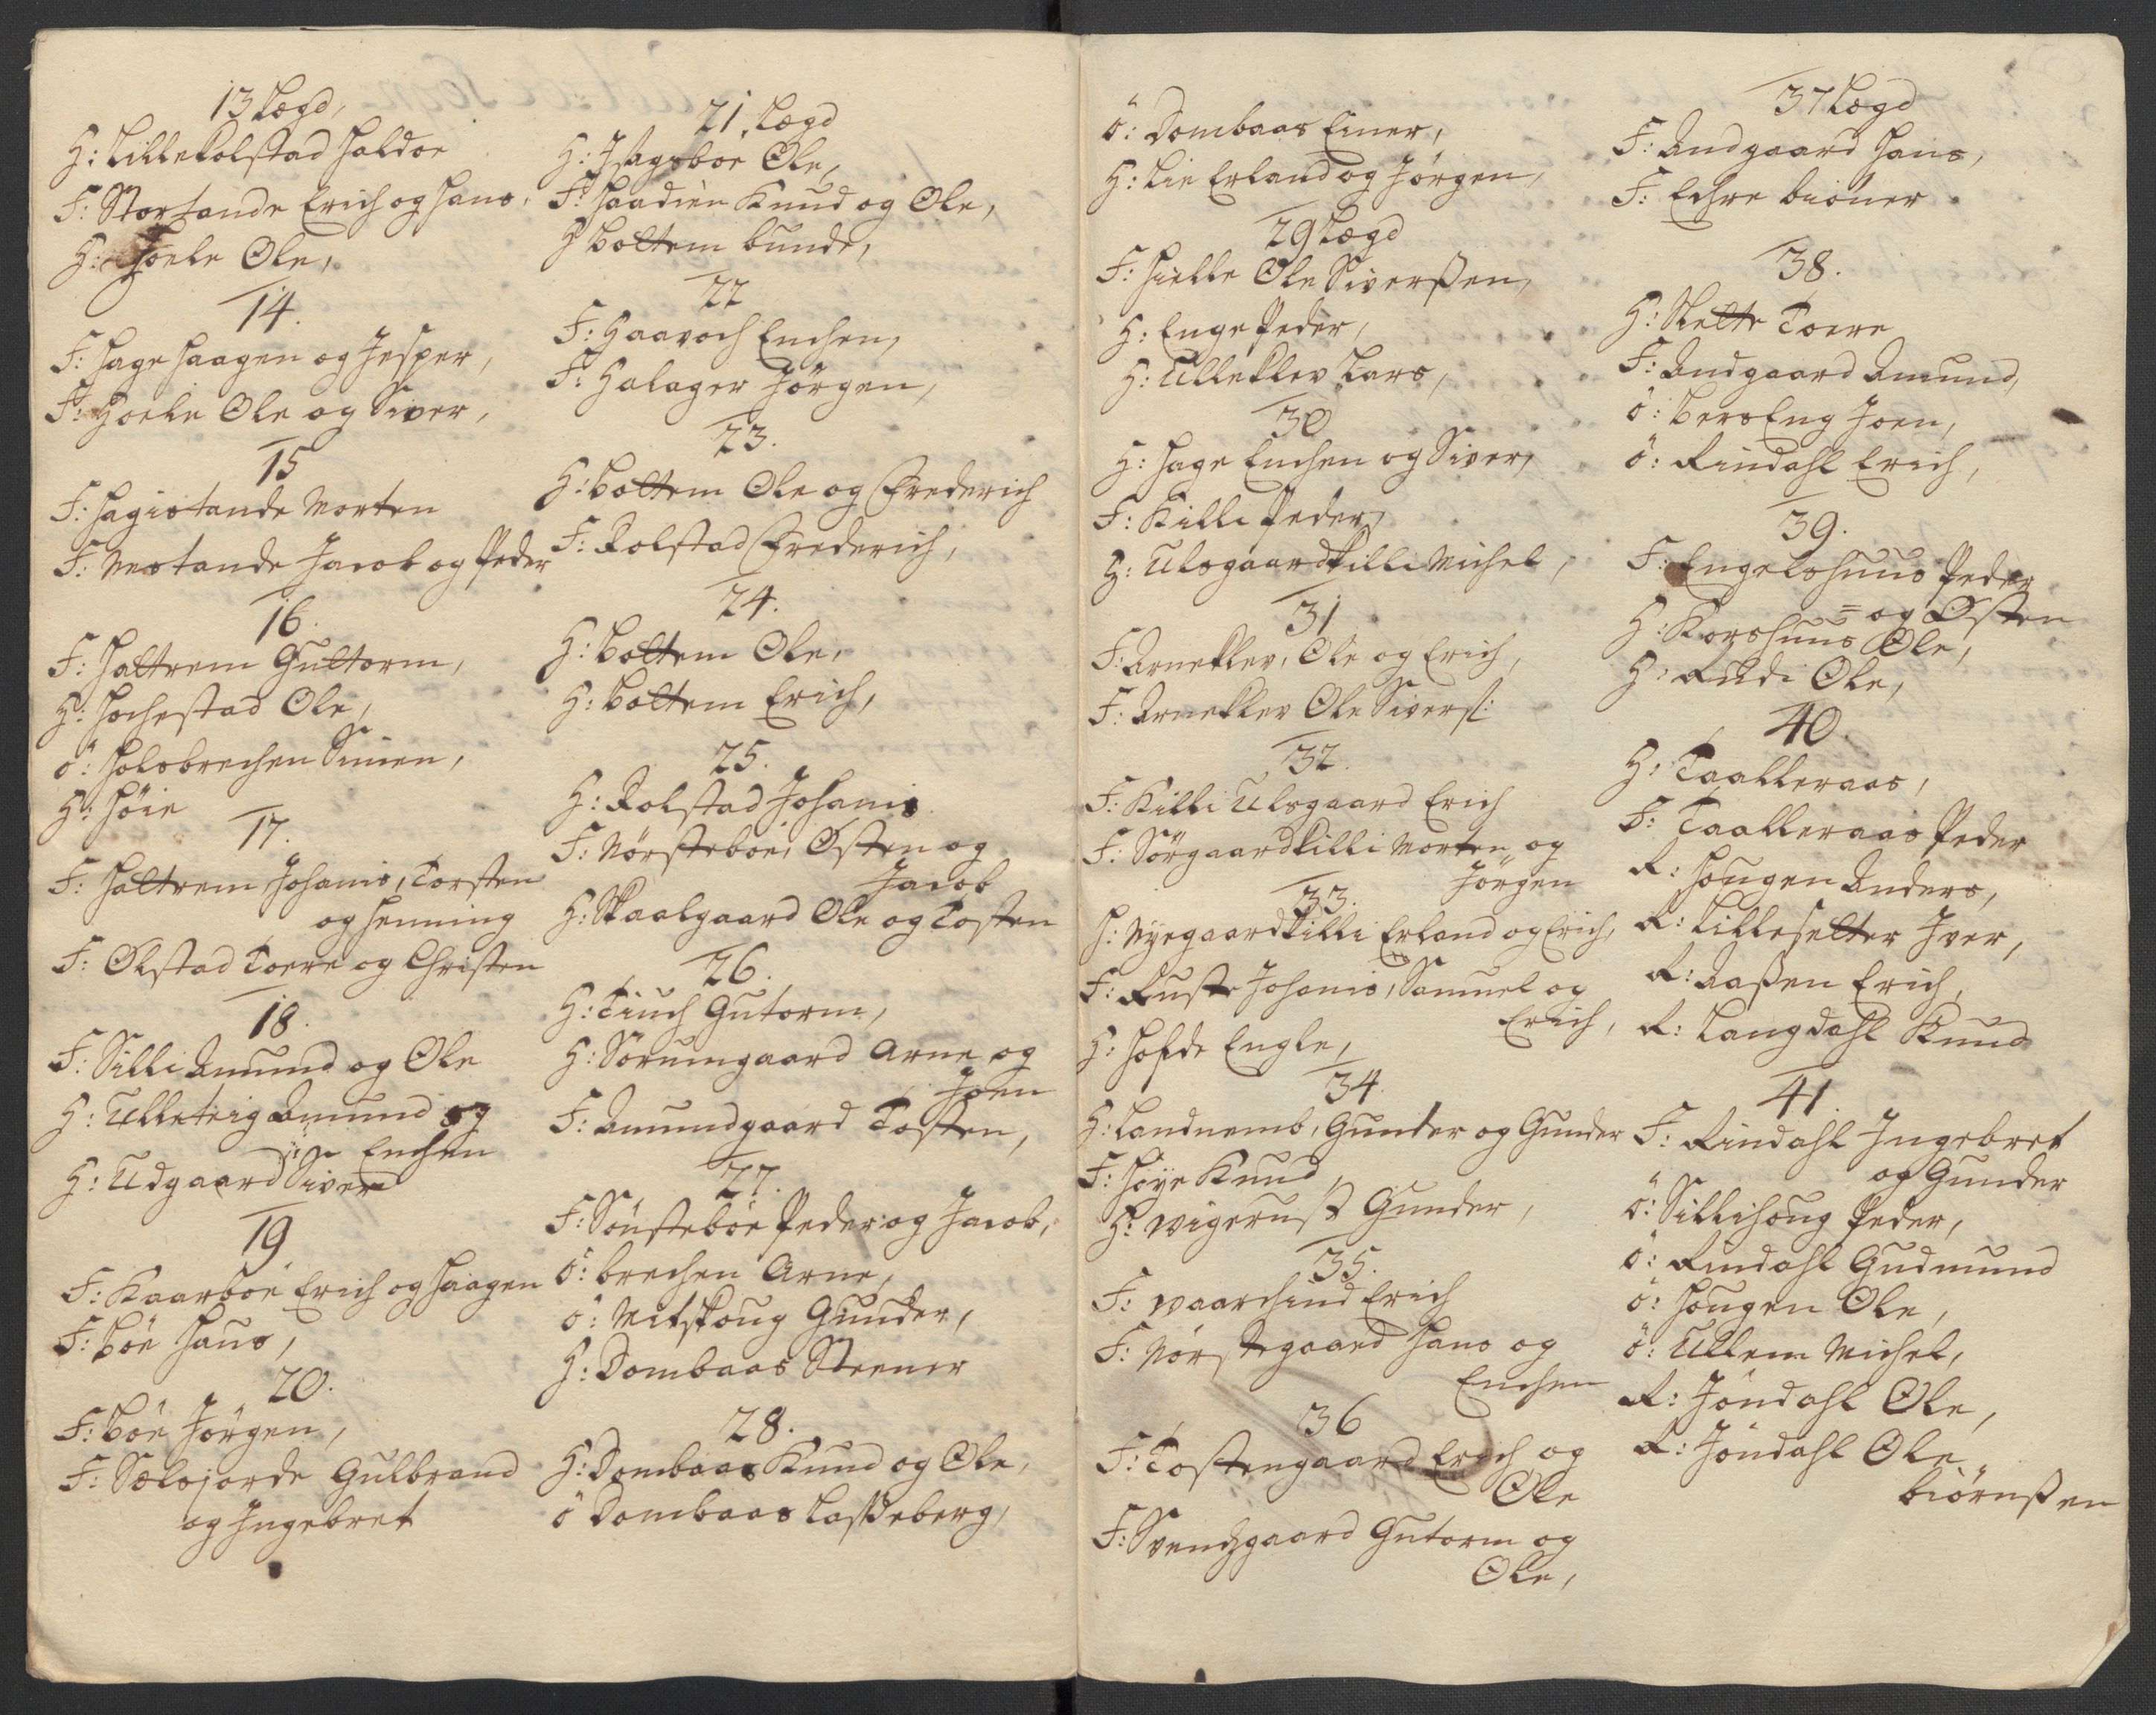 13 Lægd,
H: Lillekolstad Haldor
F: Stortande Erich og Hans,
H: Hoele Ole,
14.
F: Hage Haagen og Jesper,
F: Hoele Ole og Siver,
15
F: Hagistande Morten
F: Mostande Jacob og Peder
16.
F: Haltrem Gultorm,
H: Hochestad Ole,
ö: Holsbrechen Simen,
H: Höie
17.
F: Haltrem Johanis, Torsten
og Henning
F: Olstad Toere og Christen
18.
F: Silli Amund og Ole
H: Ulleteig Amund og
Enchen
H: Udgaard Siver
19
F: Kaarboe Erich og Haagen
F: Böe Hans,
20.
F: Böe Jörgen,
F: Selsjorde Gulbrand
og Ingebret
21, Lægd
H: Ole,
F: Haadien Knud og Ole,
H Boltem bunde,
22
F: Haavoch Enchen,
F: Halager Jörgen,
23.
H: Boltem Ole og Frederich
F: Rolstad Frederich,
24.
H: Boltem Ole,
H: Boltem Erich,
25.
H: Rolstad Johanis
F: Nörsteboe, Østen og
Jacob
H: Skaalgaard Ole og Tosten
26.
H: Tiuch Gutorm,
H: Sörumgaard Arne og
Joen
F: Amundgaard Tosten,
27.
F: Sönsteböe Peder og Jacob,
ö: brechen Arne,
ö: Mitskoug Gunder,
H: Dombaas Steener
28.
H: Dombaas Knud og Ole,
ö Dombaas Lasseberg,
ö: Dombaas Einer,
H: Lie Erland og Jörgen,
29 Lægd
F: Hielle Ole Siverßen,
H: Enge Peder,
H: Ulleklev Lars,
30
H: Hage Enchen og Siver,
F: Killi Peder,
H: Ulsgaardkilli Michel,
31
F: Arneklev, Ole og Erich,
F: Arneklev Ole Sivers:
32.
F: Killi Ulsgaard Erich
F: Sörgaardkilli Morten og
Jörgen
33.
H: Nyegaardkilli Erland og Erich,
F: Ruste Johanis, Samuel og
Erich,
H: Hofde Engle,
34.
H: Landnemb, Gunder og Gunder
F: Höye Knud,
H: Wigerust Gunder,
35.
F: Waarchind Erich
F: Nörstegaard Hans og
Enchen
36
F: Tostengaard Erich og
Ole
F: Svendzgaard Gutorm og
Ole,
37 Lægd
F: Andgaard Hans,
F: Echre biöner
38.
H: Slette Toere
F: Andgaard Amund,
ö: BersEng Joen,
ö: Rindahl Erich,
39.
F: Engelshuus Peder
= og Østen
H: Korshuus Ole,
H: Rudi Ole,
40.
H: Taalleraas,
F: Taalleraas Peder
R: Hougen Anders,
R: Lilleselter Iver,
R: Aaßen Erich,
R: Langdahl Knud
41.
F: Rindahl Ingebret
og Gunder
ö: Sillihoug Peder,
ö: Rindahl Gudmund
ö: Hougen Ole,
ö: Ullem Michel,
R: Jöndahl Ole,
R: Jöndahl Ole
Biörnßen